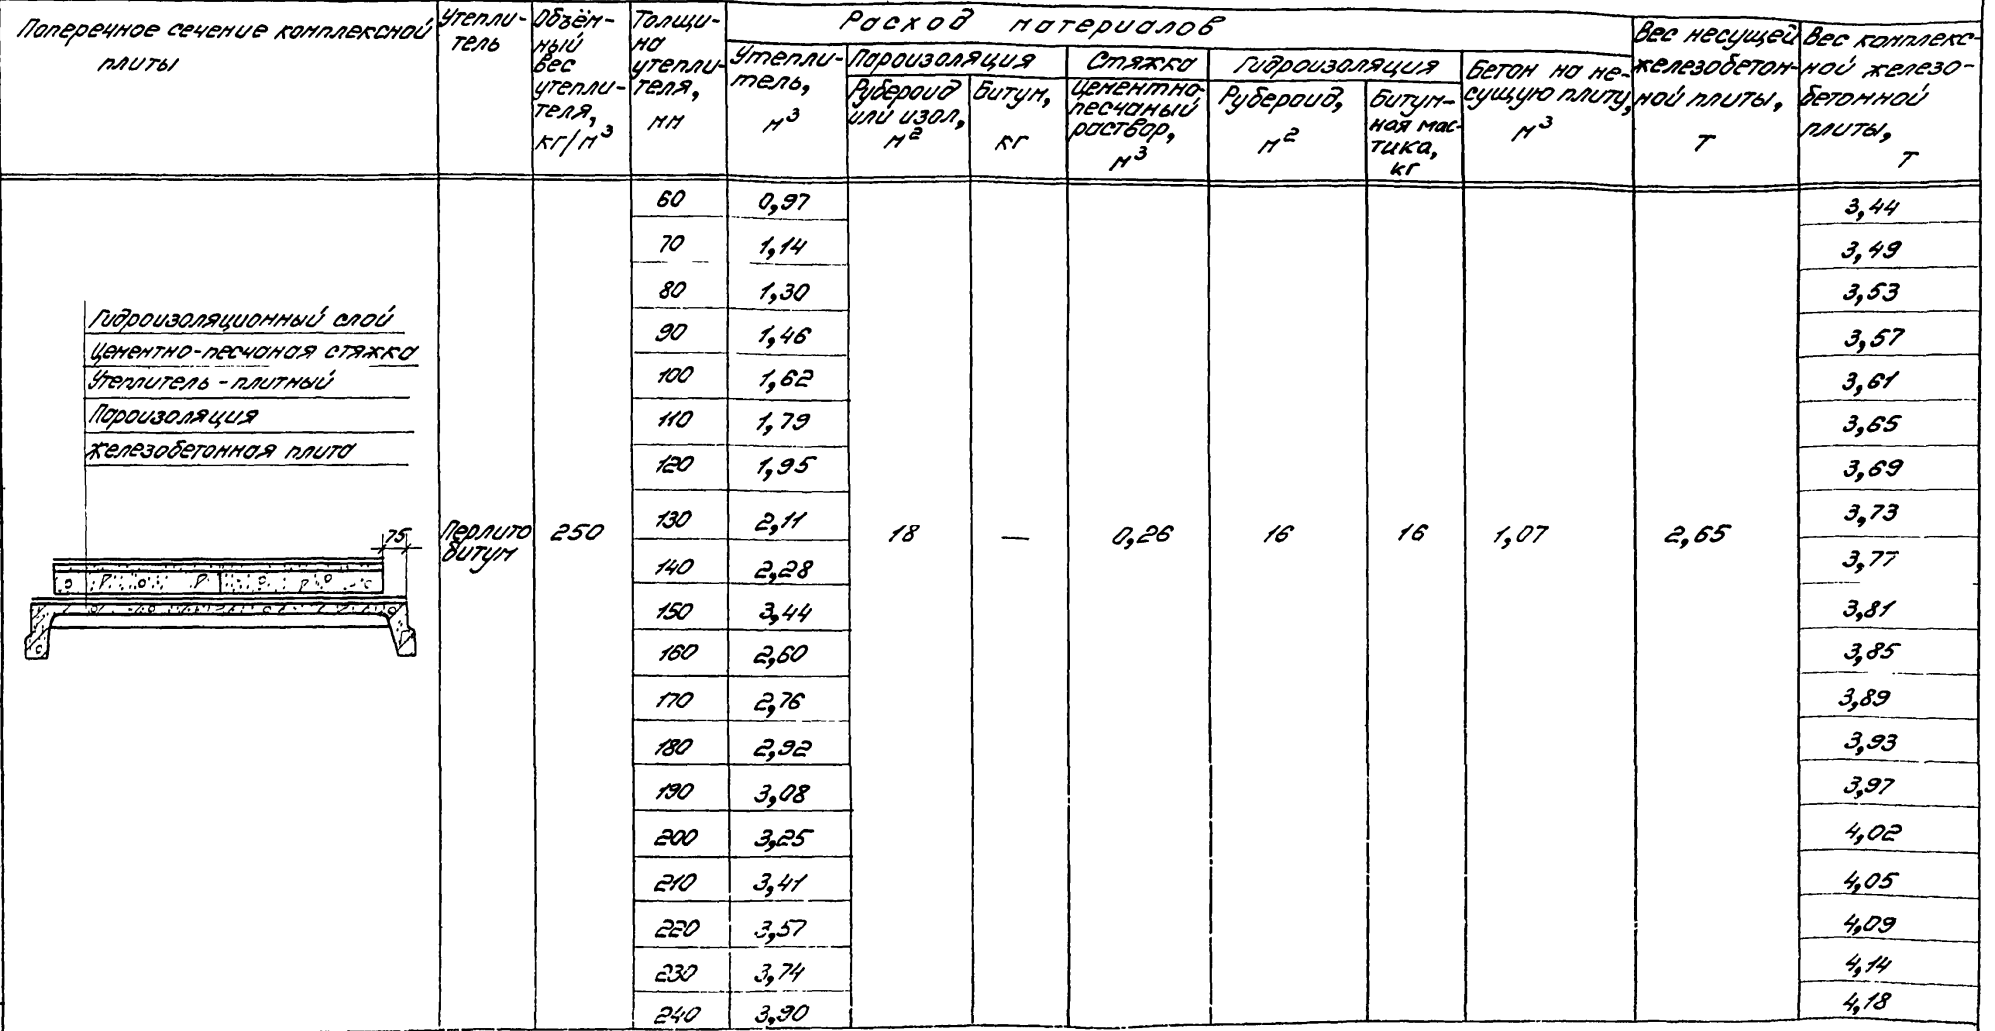 Поперечное сечение комплексной
плиты
Утепли-
тель
Объём-
ный
вес
утепли-
теля,
кг/м³
Толщи-
на
утепли-
теля,
мм
Расход материалов
Утепли-
тель,
м³
Пароизоляция
Рубероид
или изол,
м²
Битум,
кг
Стяжка
Цементно-
песчаный
раствор,
м³
Гидроизоляция
Рубероид,
м²
Битум-
ная мас-
тика,
кг
Бетон на не-
сущую плиту,
м³
Вес несущей
железобетон-
ной плиты,
т
Вес комплекс-
ной железо-
бетонной
плиты,
т
Гидроизоляционный слой
Цементно-песчаная стяжка
Утеплитель - плитный
Пароизоляция
Железобетонная плита
75
Перлито
битум
250
18
—
0,26
16
16
1,07
2,65
60 0,97 3,44
70 1,14 3,49
80 1,30 3,53
90 1,46 3,57
100 1,62 3,61
110 1,79 3,65
120 1,95 3,69
130 2,11 3,73
140 2,28 3,77
150 3,44 3,81
160 2,60 3,85
170 2,76 3,89
180 2,92 3,93
190 3,08 3,97
200 3,25 4,02
210 3,41 4,05
220 3,57 4,09
230 3,74 4,14
240 3,90 4,18